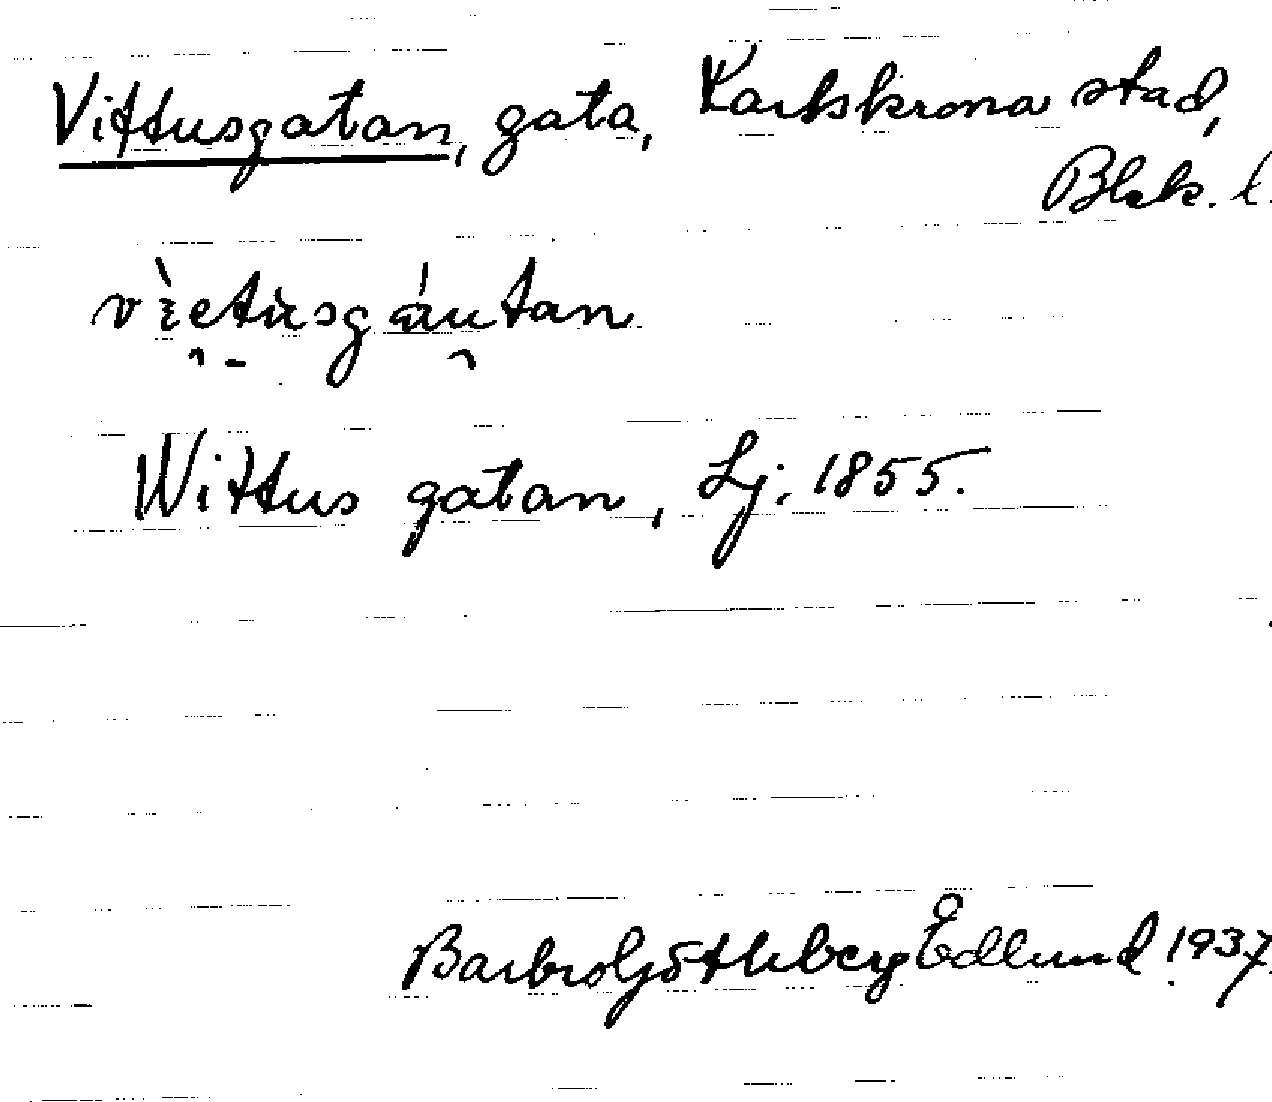 Vittusgatan, gata, Karlskrona stad,
Blek. l.
vìctùsgáutan
Wittus gatan, Lj. 1855.
Barbro Götheberg Edlund 1937.